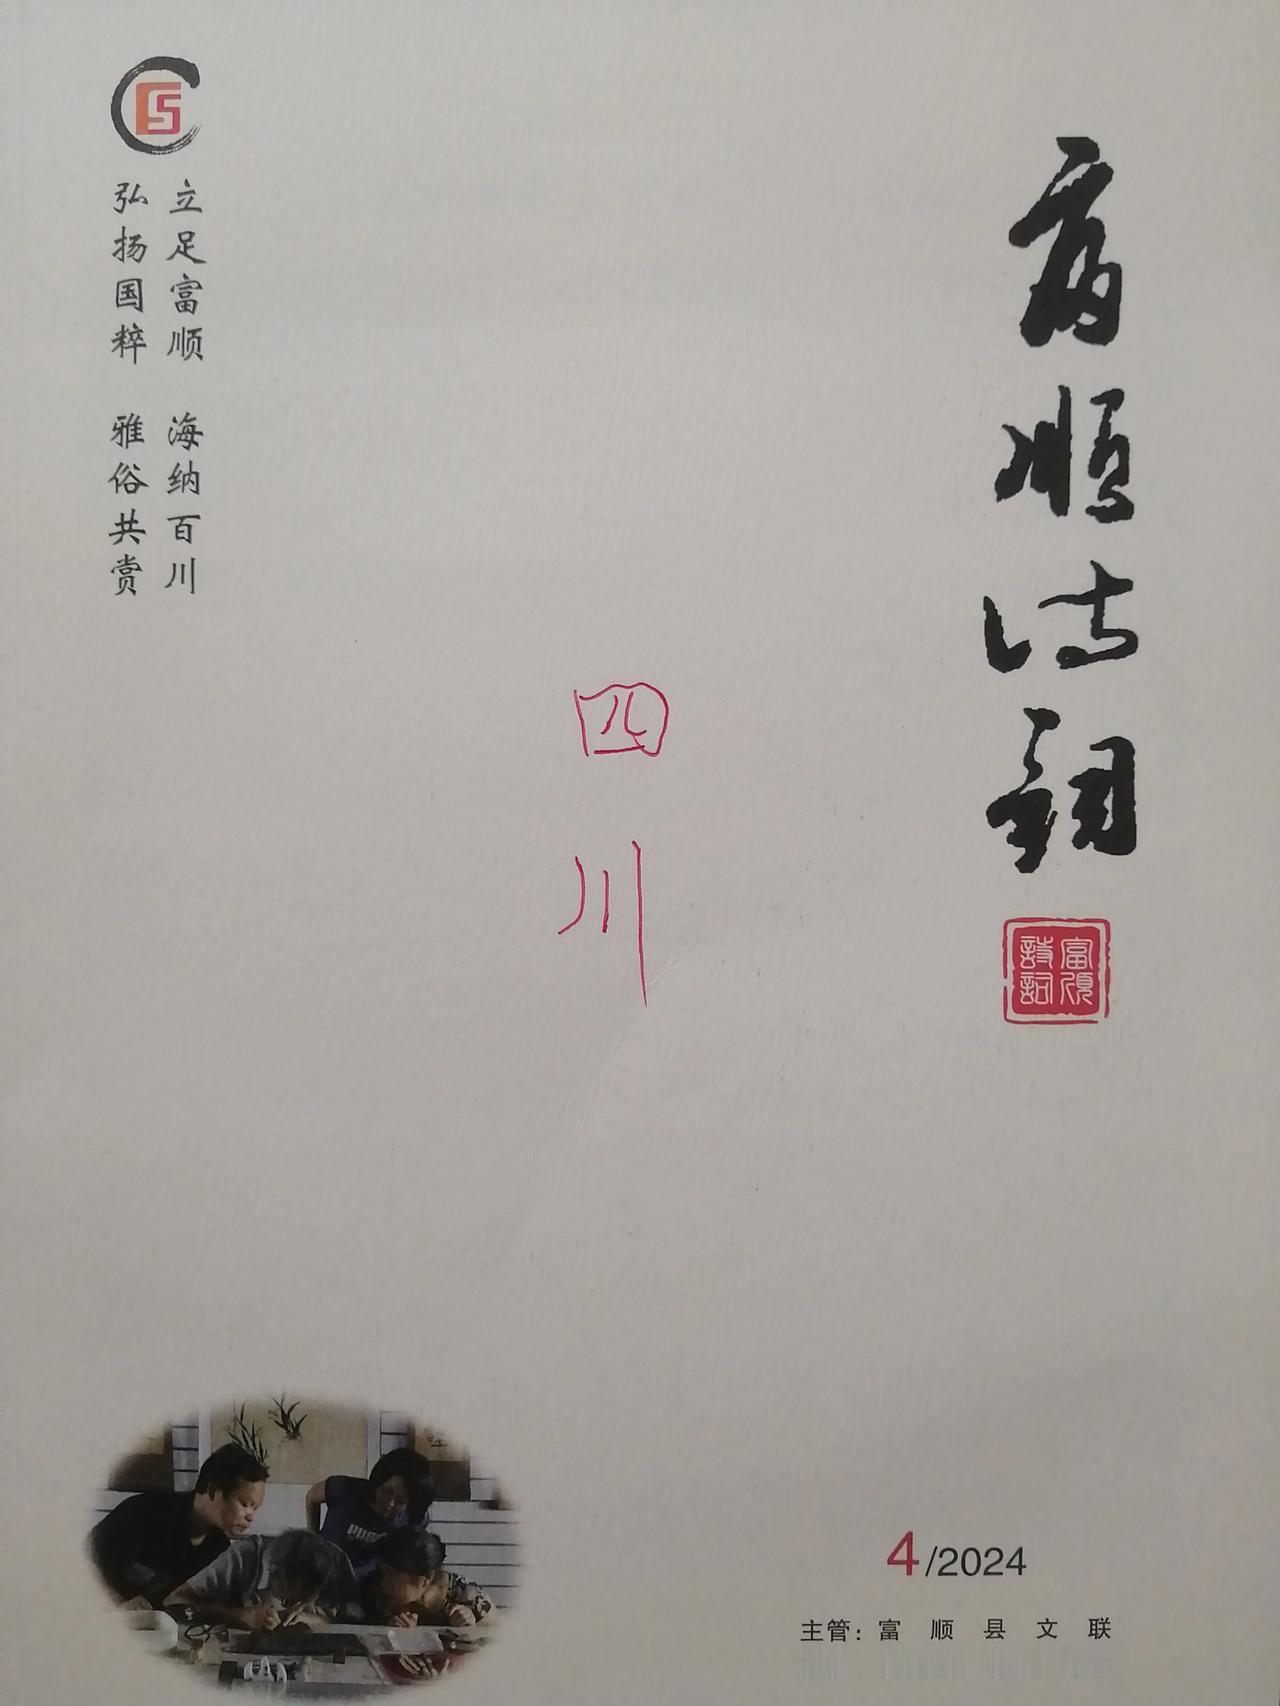 富顺诗词
富順
詩詞
立足富顺 海纳百川
弘扬国粹 雅俗共赏
四川
4/2024
主管：富顺县文联